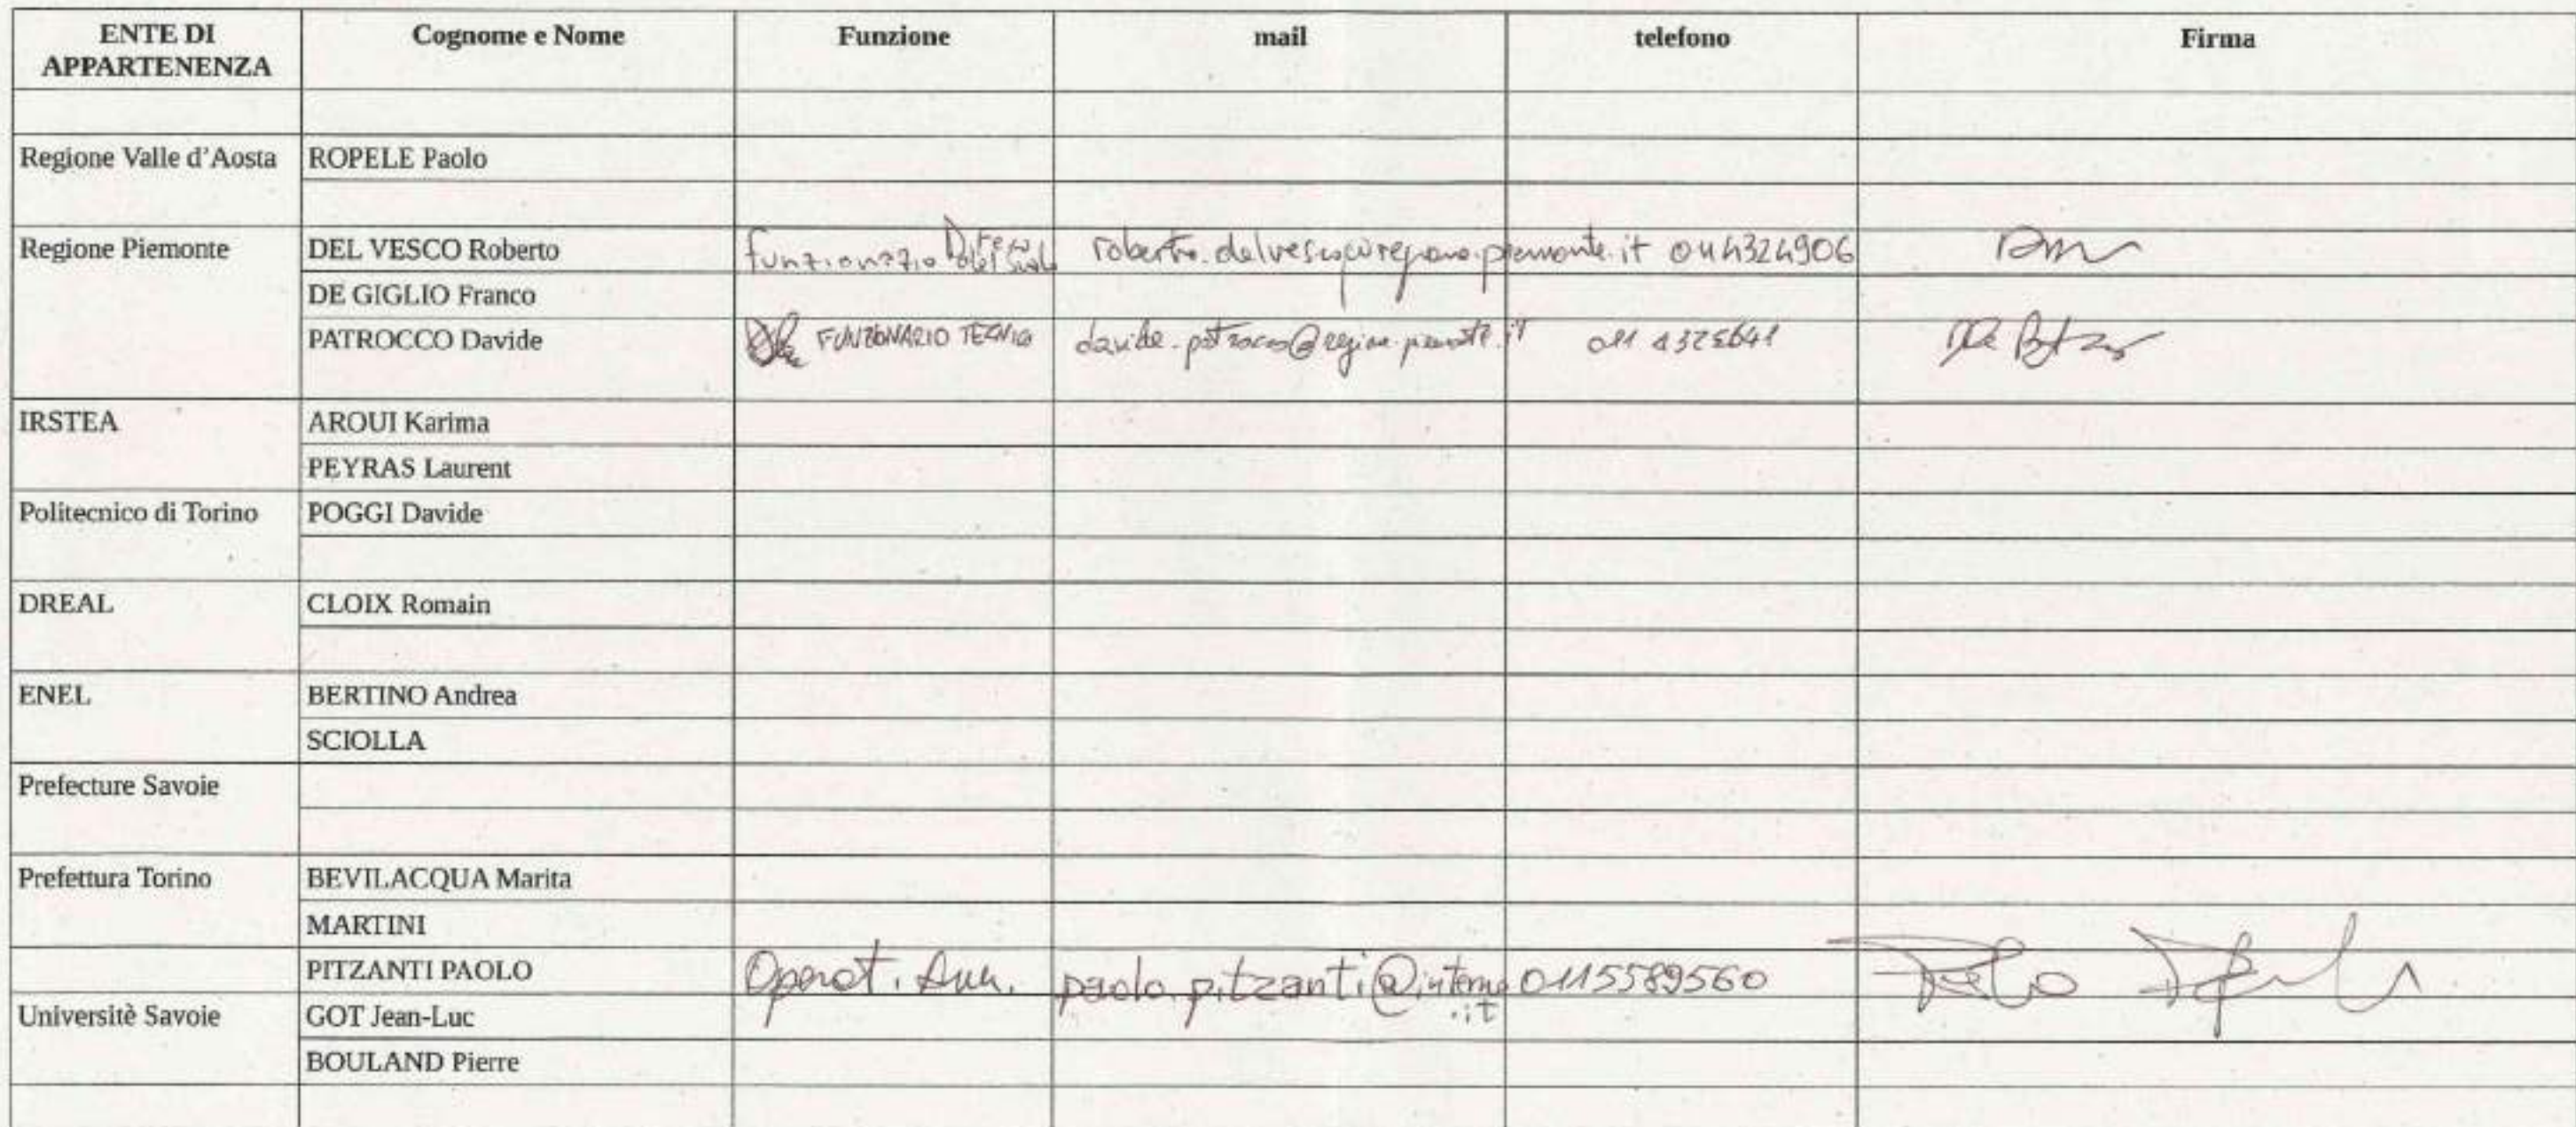 ENTE DI APPARTENENZA Cognome e Nome Funzione mail telefono Firma
Regione Valle d'Aosta ROPELE Paolo
Regione Piemonte DEL VESCO Roberto funzionario Difesa del Suolo 0114324906
DE GIGLIO Franco
PATROCCO Davide FUNZIONARIO TECNICO 011 4325641
IRSTEA AROUI Karima
PEYRAS Laurent
Politecnico di Torino POGGI Davide
DREAL CLOIX Romain
ENEL BERTINO Andrea
SCIOLLA
Prefecture Savoie
Prefettura Torino BEVILACQUA Marita
MARTINI
PITZANTI PAOLO Operat. Amm. paolo.pitzanti@interno.it 0115589560
Universitè Savoie GOT Jean-Luc
BOULAND Pierre